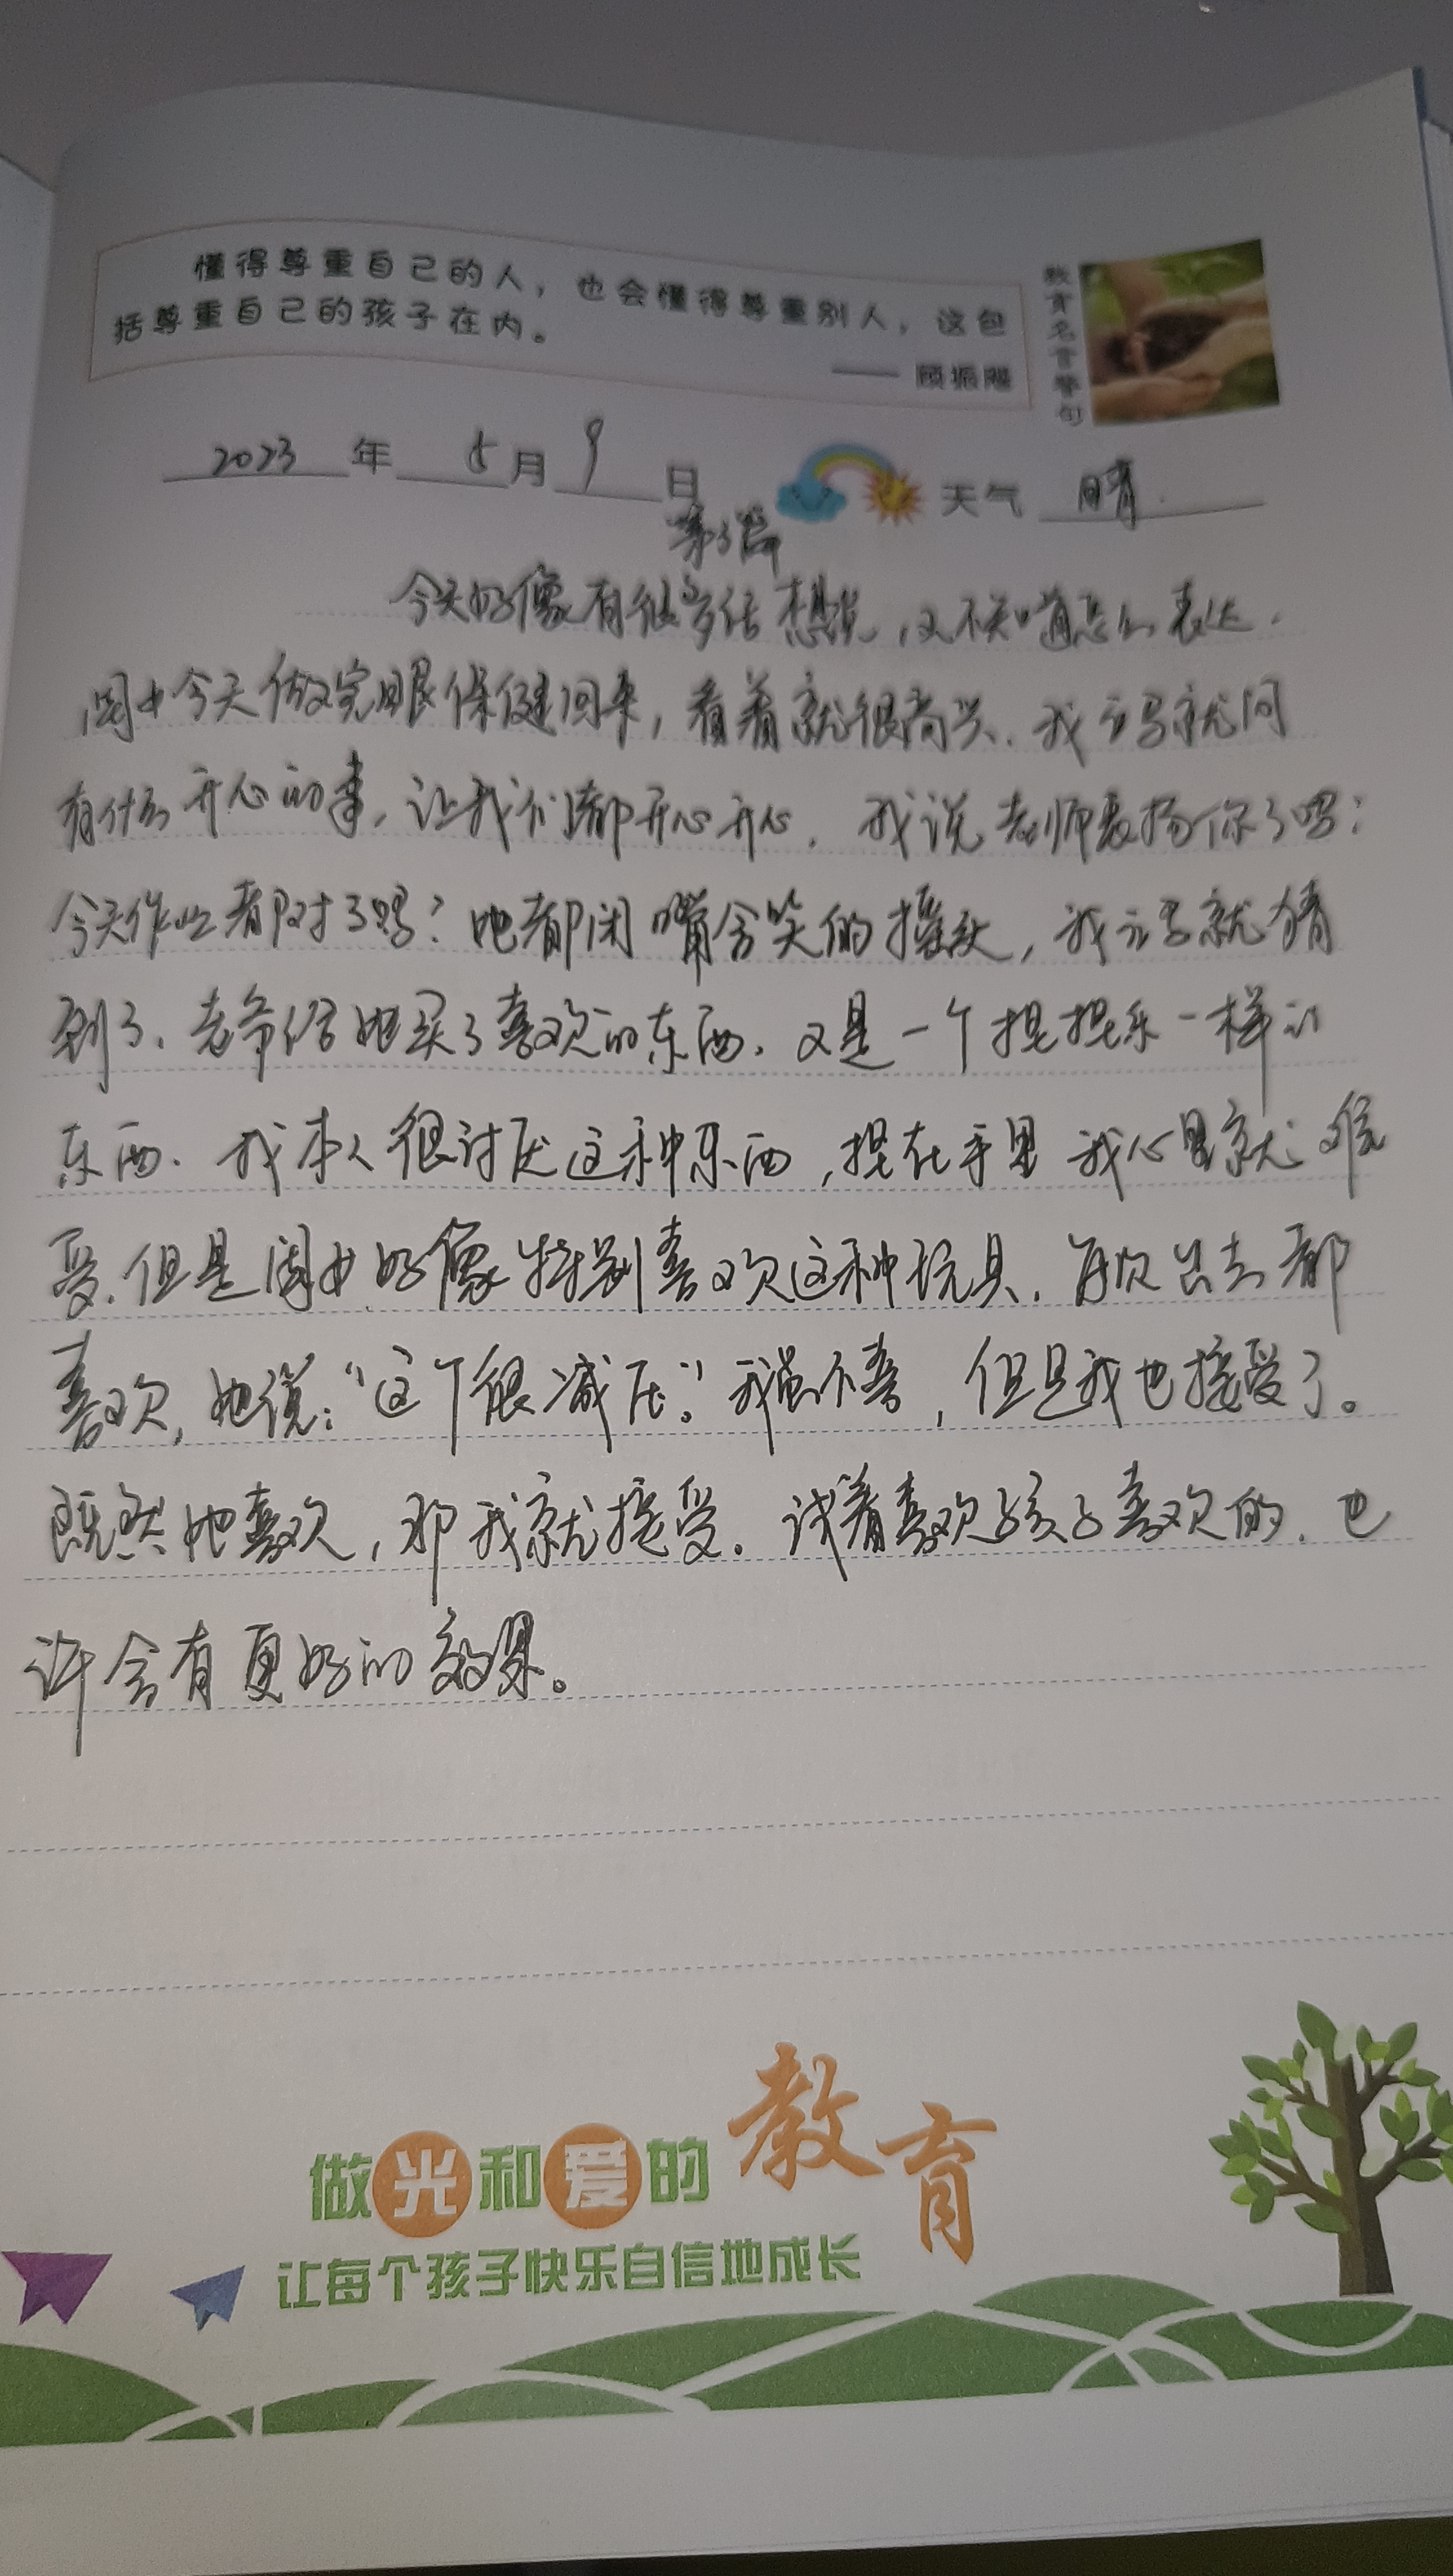 懂得尊重自己的人，也会懂得尊重别人，这包
括尊重自己的孩子在内。
教育名言警句
2023年5月9日 天气 晴.
今天好像有很多话想说，又不知道怎么表达.
闺女今天做完眼保健回来，看着就很高兴.我立马就问
有什么开心的事，让我们都开心开心.我说老师表扬你了吗？
今天作业都对了吗？她都闭嘴含笑的摇头，我立马就猜
到了、老爷给她买了喜欢的东西.又是一个捏捏乐一样的
东西.我本人很讨厌这种东西，捏在手里我心里就难
受.但是闺女好像特别喜欢这种玩具.每次出去都
喜欢，她说：“这个很减压。”我虽不喜，但是我也接受了。
既然她喜欢，那我就接受.试着喜欢孩子喜欢的.也
许会有更好的效果。
做光和爱的教育
让每个孩子快乐自信地成长